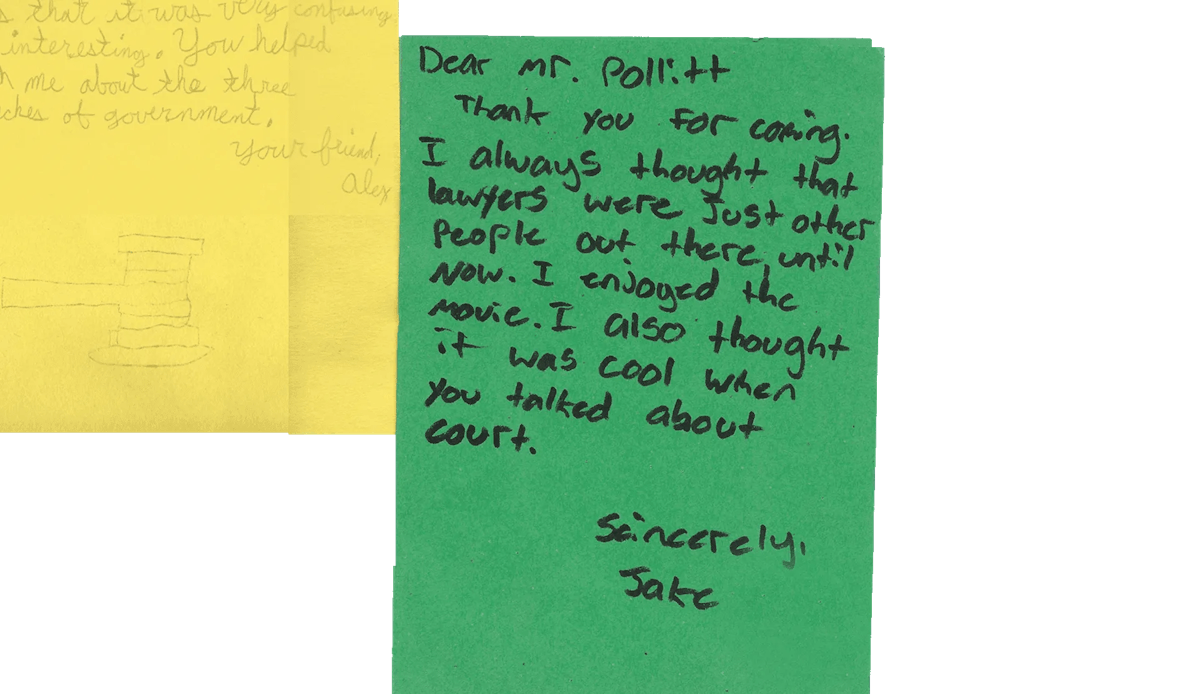 s that it was very confusing
interesting. You helped
me about the three
ches of government.
Your friend,
Alex
Dear Mr. Pollitt
Thank you for coming.
I always thought that
lawyers were just other
people out there until
now. I enjoyed the
movie. I also thought
it was cool when
you talked about
court.
Sincerely,
Jake